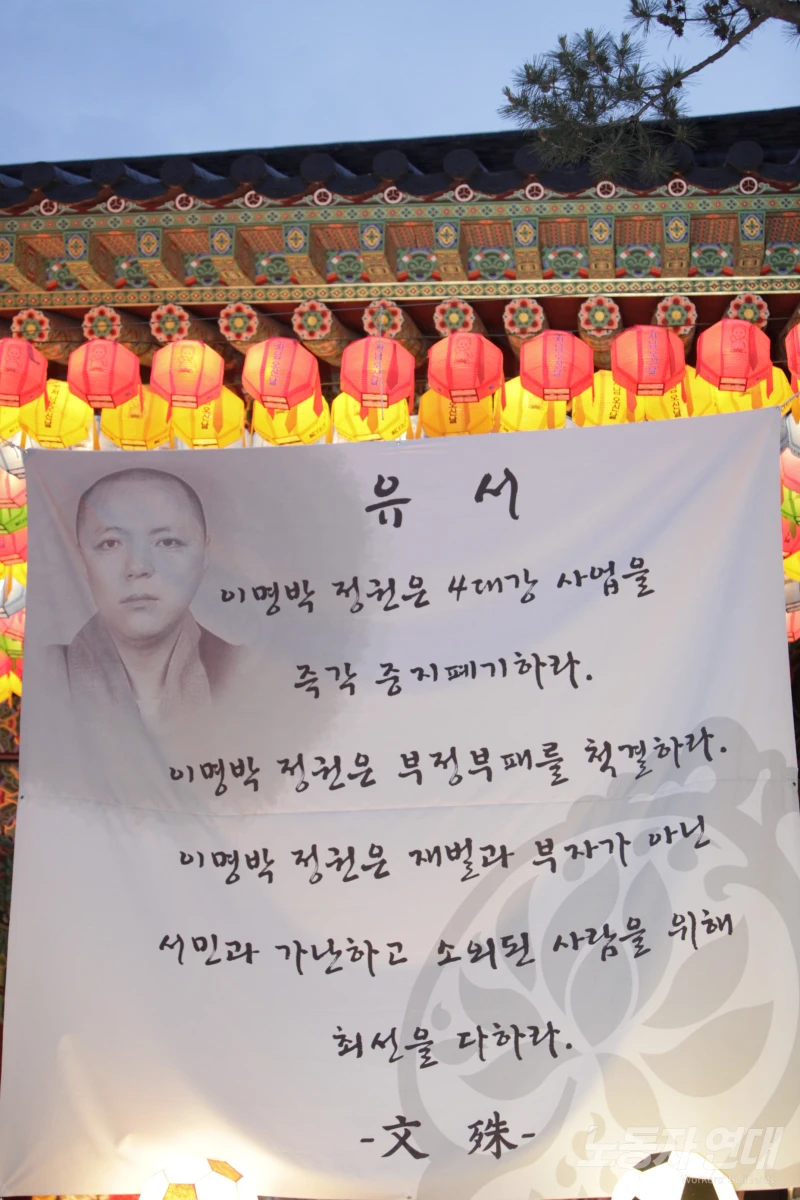 유 서
이명박 정권은 4대강 사업을
즉각 중지폐기하라.
이명박 정권은 부정부패를 척결하라.
이명박 정권은 재벌과 부자가 아닌
서민과 가난하고 소외된 사람을 위해
최선을 다하라.
-文 殊-
노동자 연대